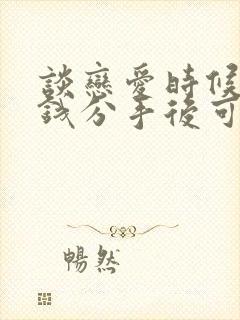 談戀愛時候
錢分手後可
暢然